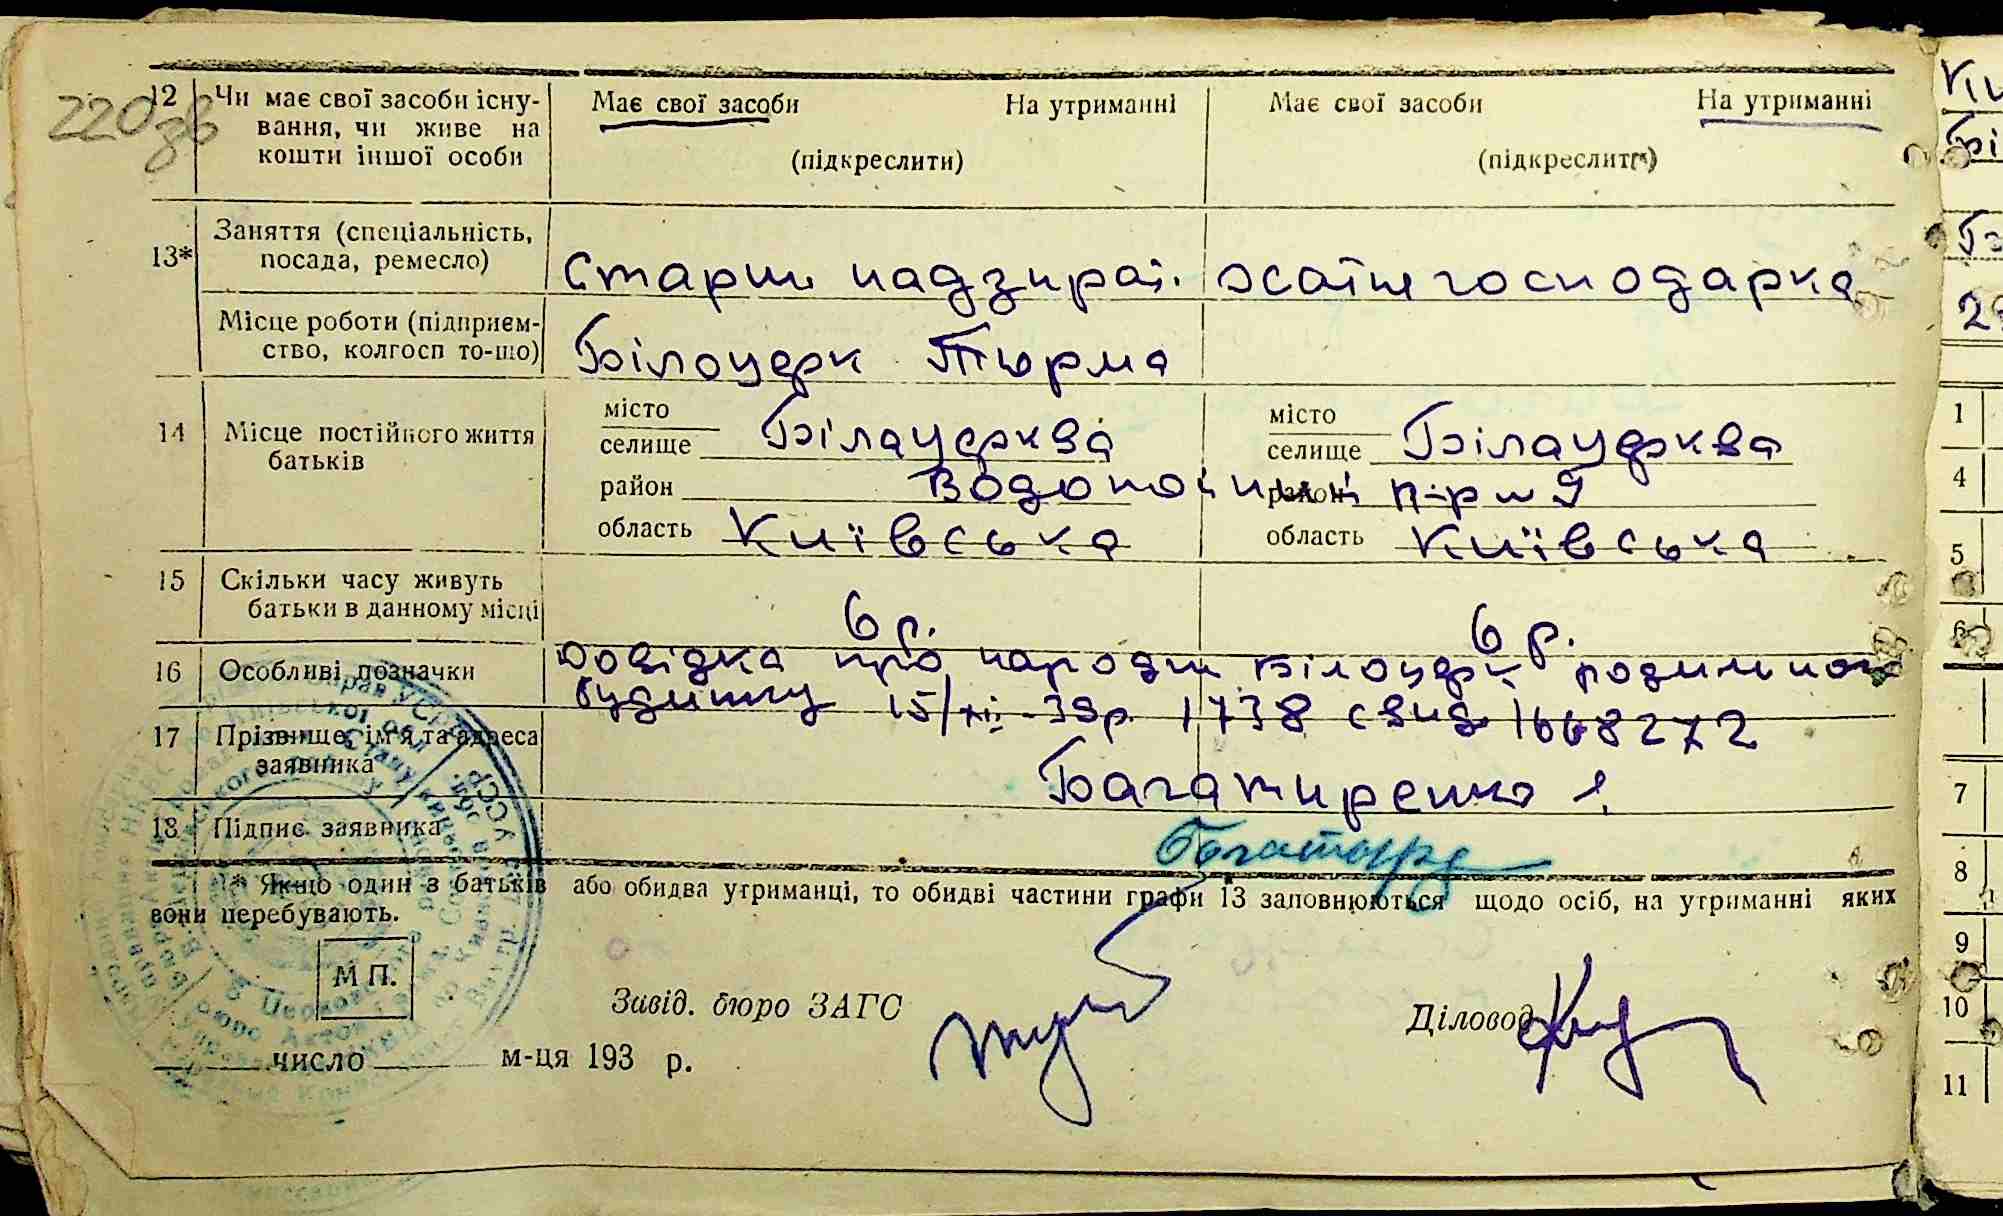 220 зв
12 Чи має свої засоби існу- Має свої засоби На утриманні Має свої засоби На утриманні
вання, чи живе на
кошти іншої особи (підкреслити) (підкреслити)
13* Заняття (спеціальність,
посада, ремесло) Старш надзират. хатнегосподарка
Місце роботи (підприєм-
ство, колгосп то-що) Білоцерк Тюрма
14 Місце постійного життя
батьків
місто місто
селище Білацерква селище Білацерква
район Водопойний район
область Київська область Київська
15 Скільки часу живуть
батьки в данному місці 6 р. 6 р.
16 Особливі позначки Довідка про народж Білоцерк родильного
будинку 15/XII-39р. 1738 свид 1668272
17 Прізвище, ім'я та адреса
заявника Багатиренко
18 Підпис заявника
* Якщо один з батьків або обидва утриманці, то обидві частини графи 13 заповнюються щодо осіб, на утриманні яких
вони перебувають.
М П.
Завід. бюро ЗАГС Діловод
число м-ця 193 р.
1
4
5
6
7
8
9
10
11